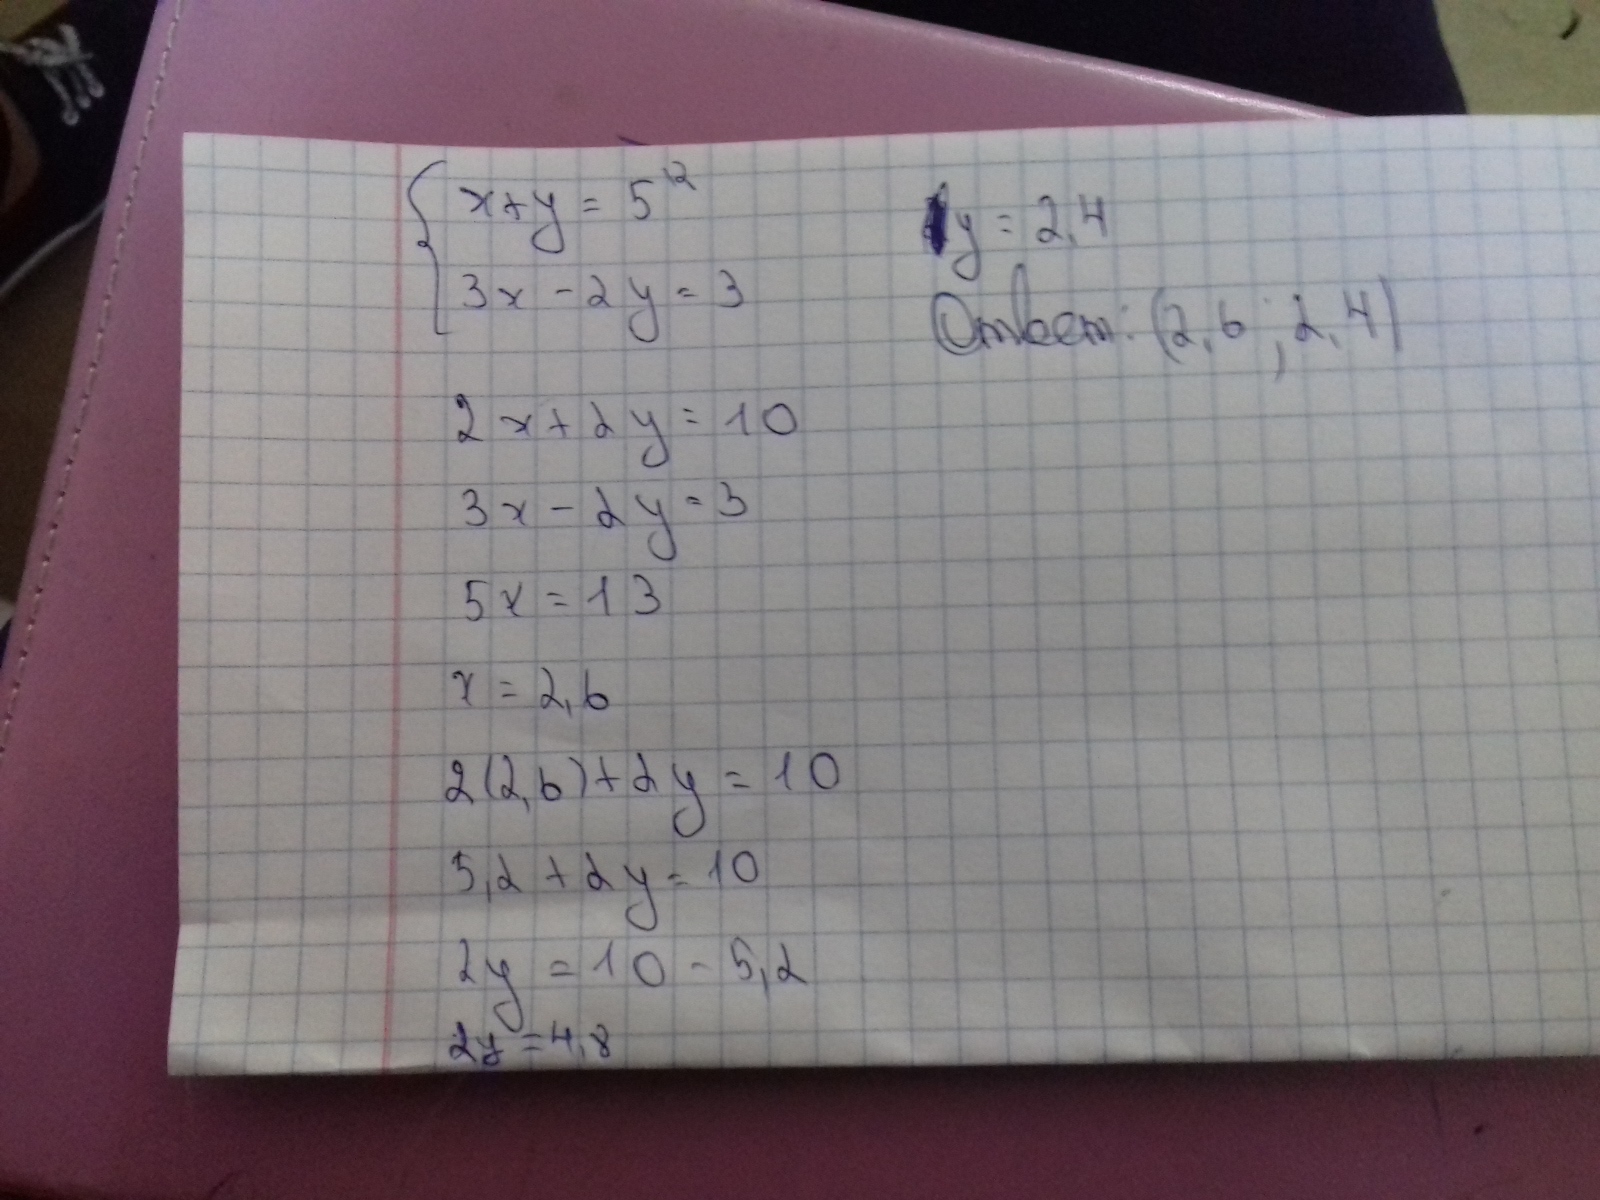 x+y = 5 |·2
3x - 2y = 3
2x + 2y = 10
3x - 2y = 3
5x = 13
x = 2,6
2(2,6) + 2y = 10
5,2 + 2y = 10
2y = 10 - 5,2
2y = 4,8
y = 2,4
Ответ: (2,6 ; 2,4)